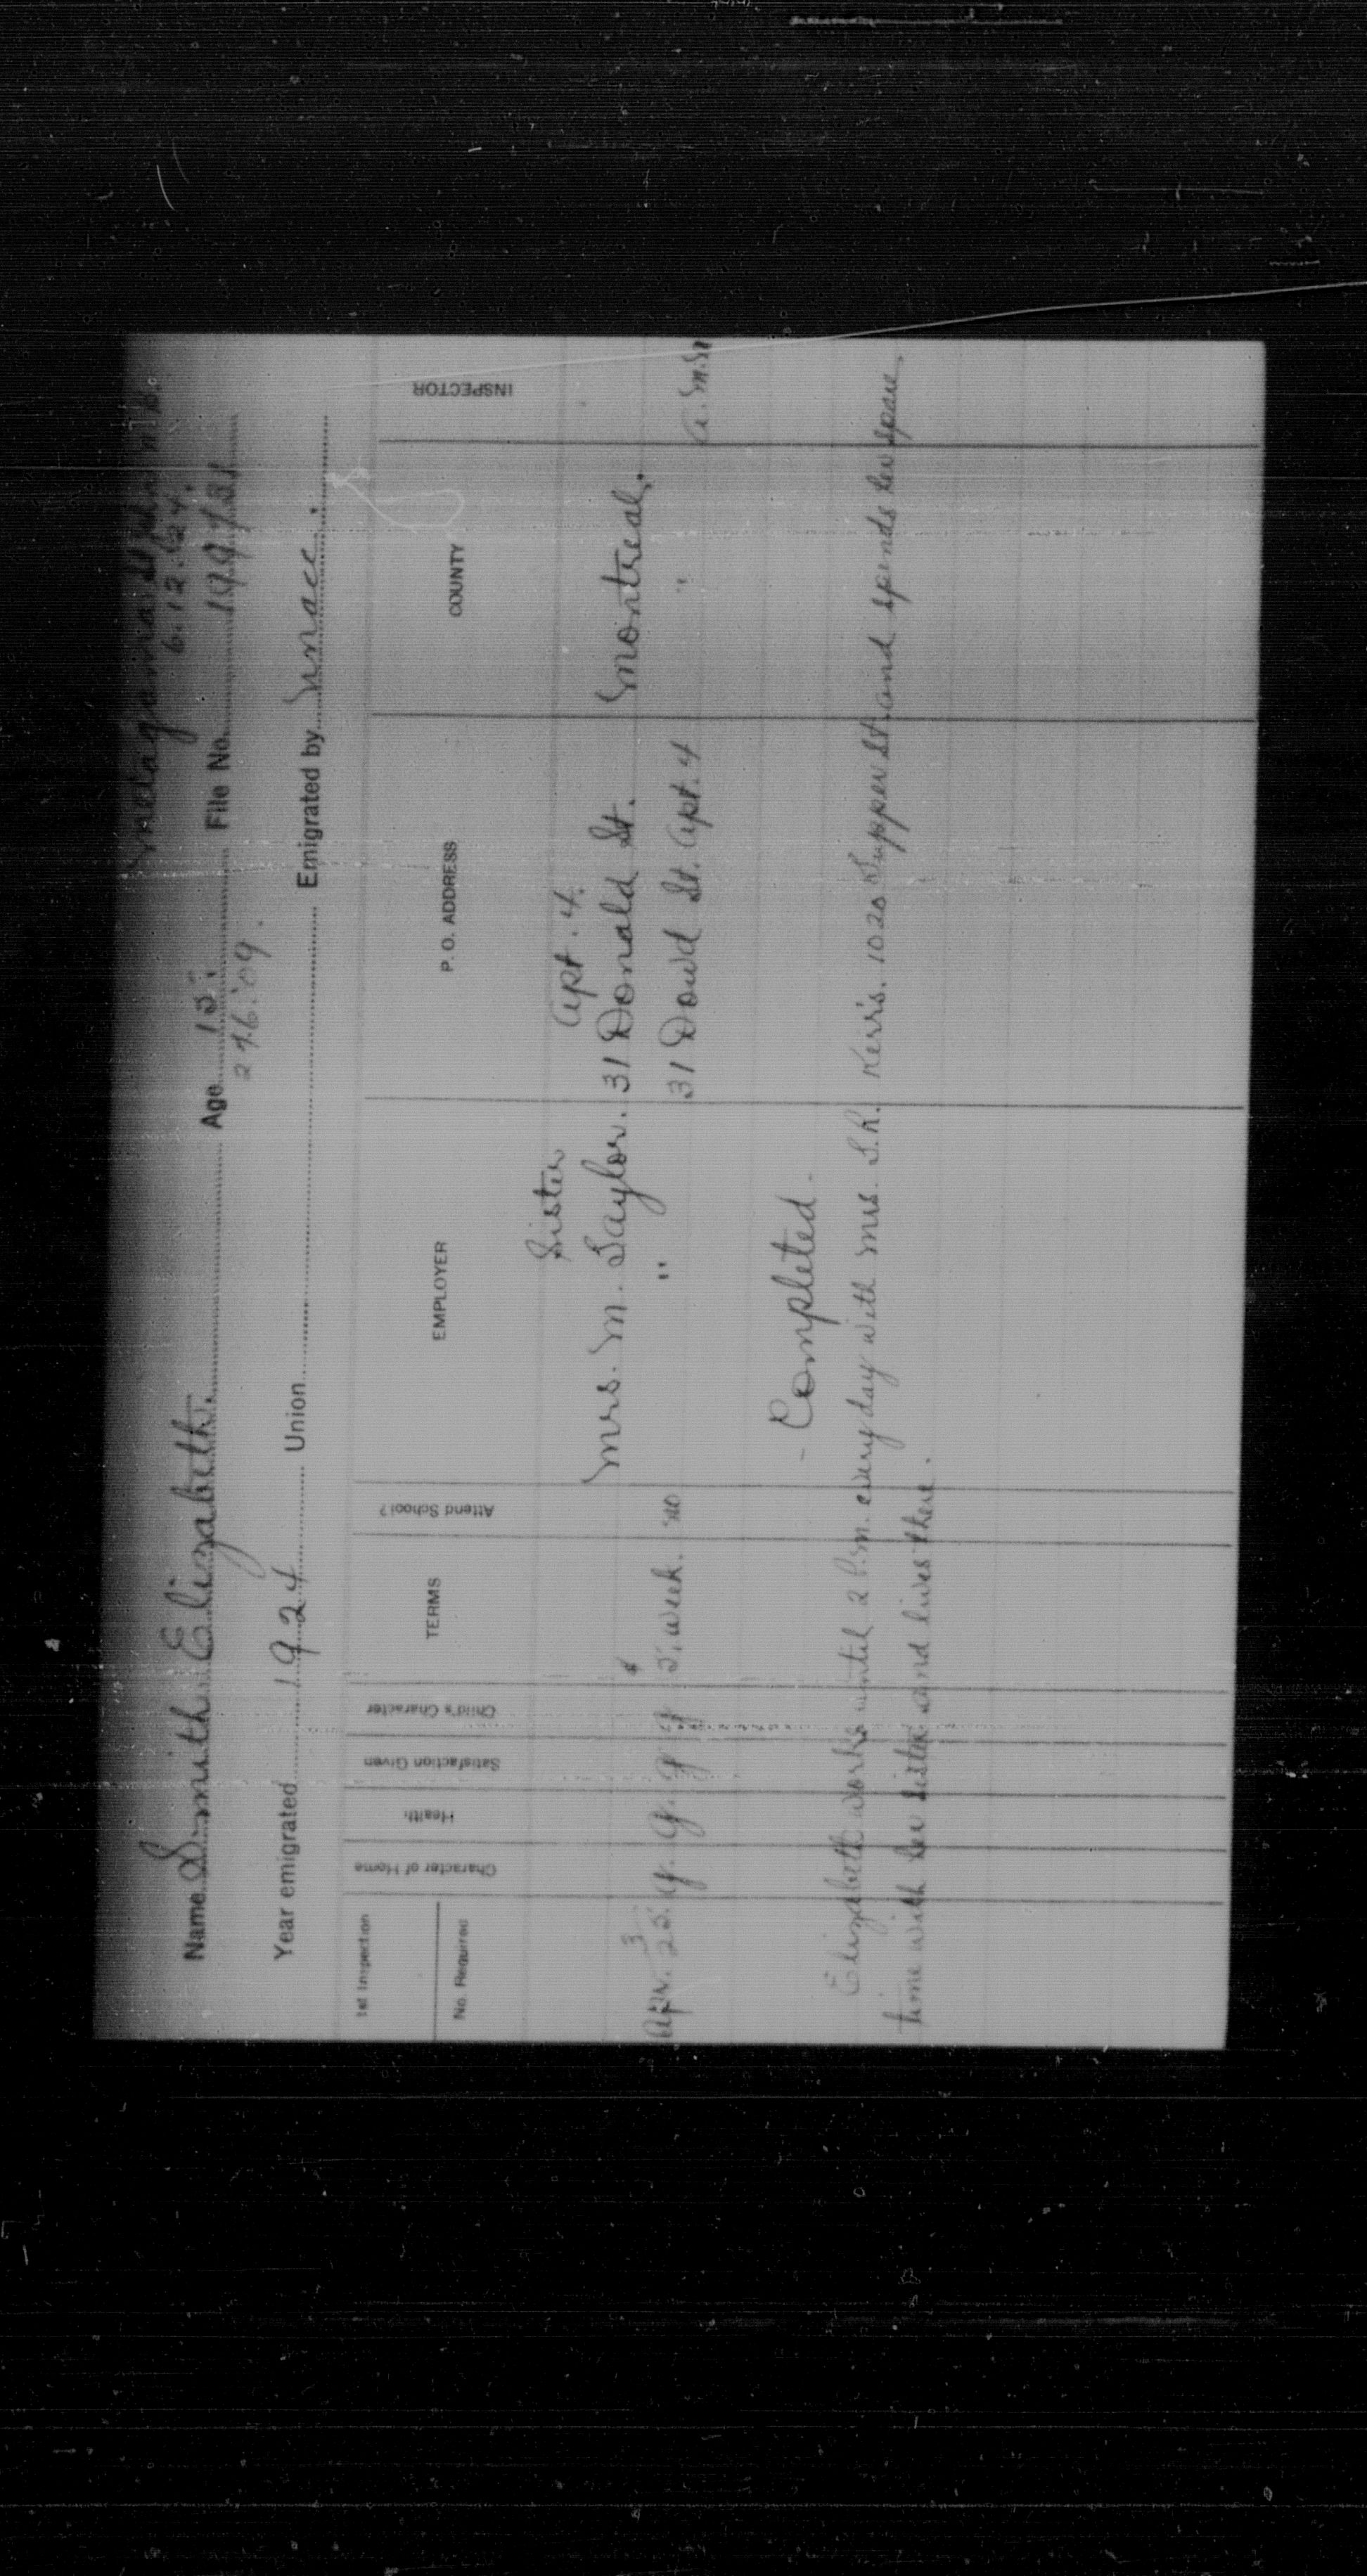 Metagama St John N.B.
6.12.24.
Name Smith Elizabeth. Age 15. File No. 199731
27.6.'09.
Year emigrated 1924 Union Emigrated by Macc.
1st Inspection
No. Required
Character of Home
Health
Satisfaction Given
Child's Character
TERMS
Attend School?
EMPLOYER
P. O. ADDRESS
COUNTY
INSPECTOR
Sister Apt. 4.
Mrs. M. Taylor. 31 Donald St. Montreal.
Apr. 3 25. G. G. G. G $ 5. week. no " 31 Dowd St. Apt. 4 " A.M.
- Completed -
Elizabeth works until 2 P.M. every day with Mrs. S.R. Kerr's. 1020 Tupper St. and spends her spare
time with her sister and lives there.